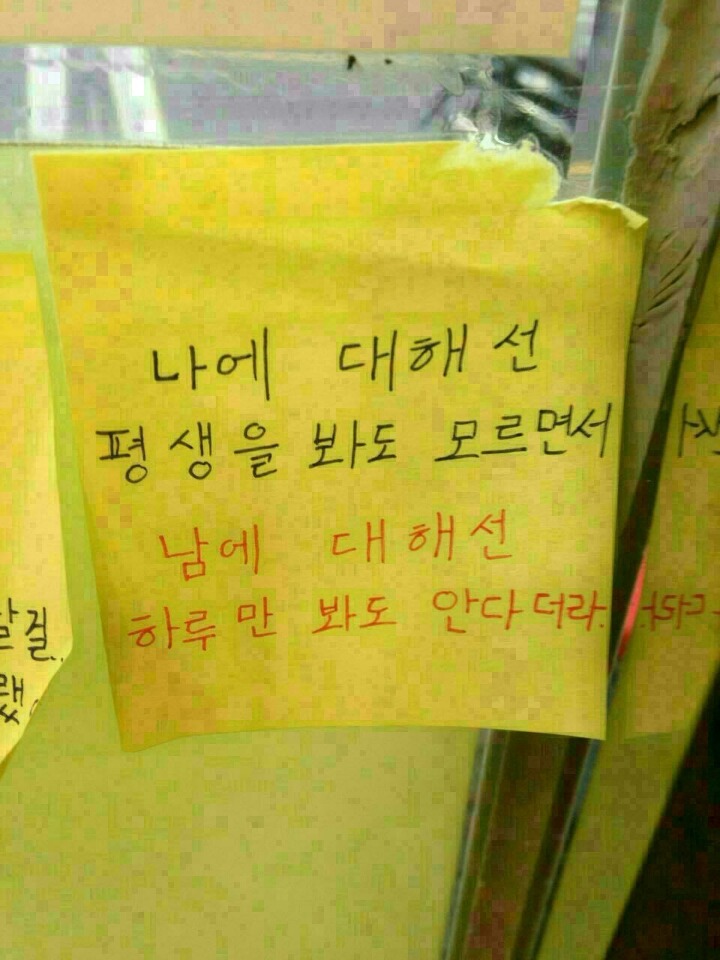 나에 대해선
평생을 봐도 모르면서
남에 대해선
하루만 봐도 안다더라.
걸..